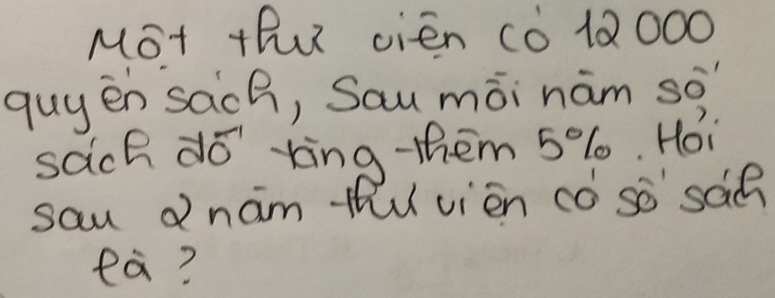 Một thư viện có 12 000
quyển sách, sau mỗi năm số
sách đó tăng thêm 5%. Hỏi
sau 2 năm thư viện có số sách
là?